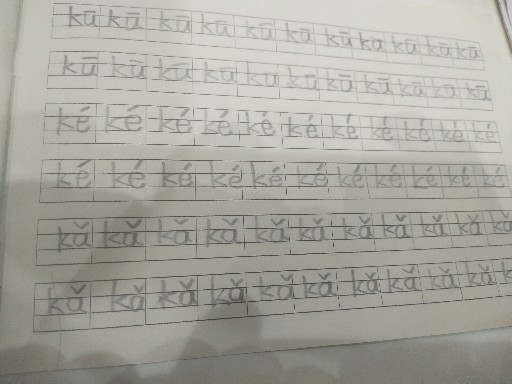 kū kū kū kū kū kū kū kū kū kū kū
kū kū kū kū kū kū kū kū kū kū kū
ké ké ké ké ké ké ké ké ké ké ké
ké ké ké ké ké ké ké ké ké ké ké
kǎ kǎ kǎ kǎ kǎ kǎ kǎ kǎ kǎ kǎ kǎ
kǎ kǎ kǎ kǎ kǎ kǎ kǎ kǎ kǎ kǎ